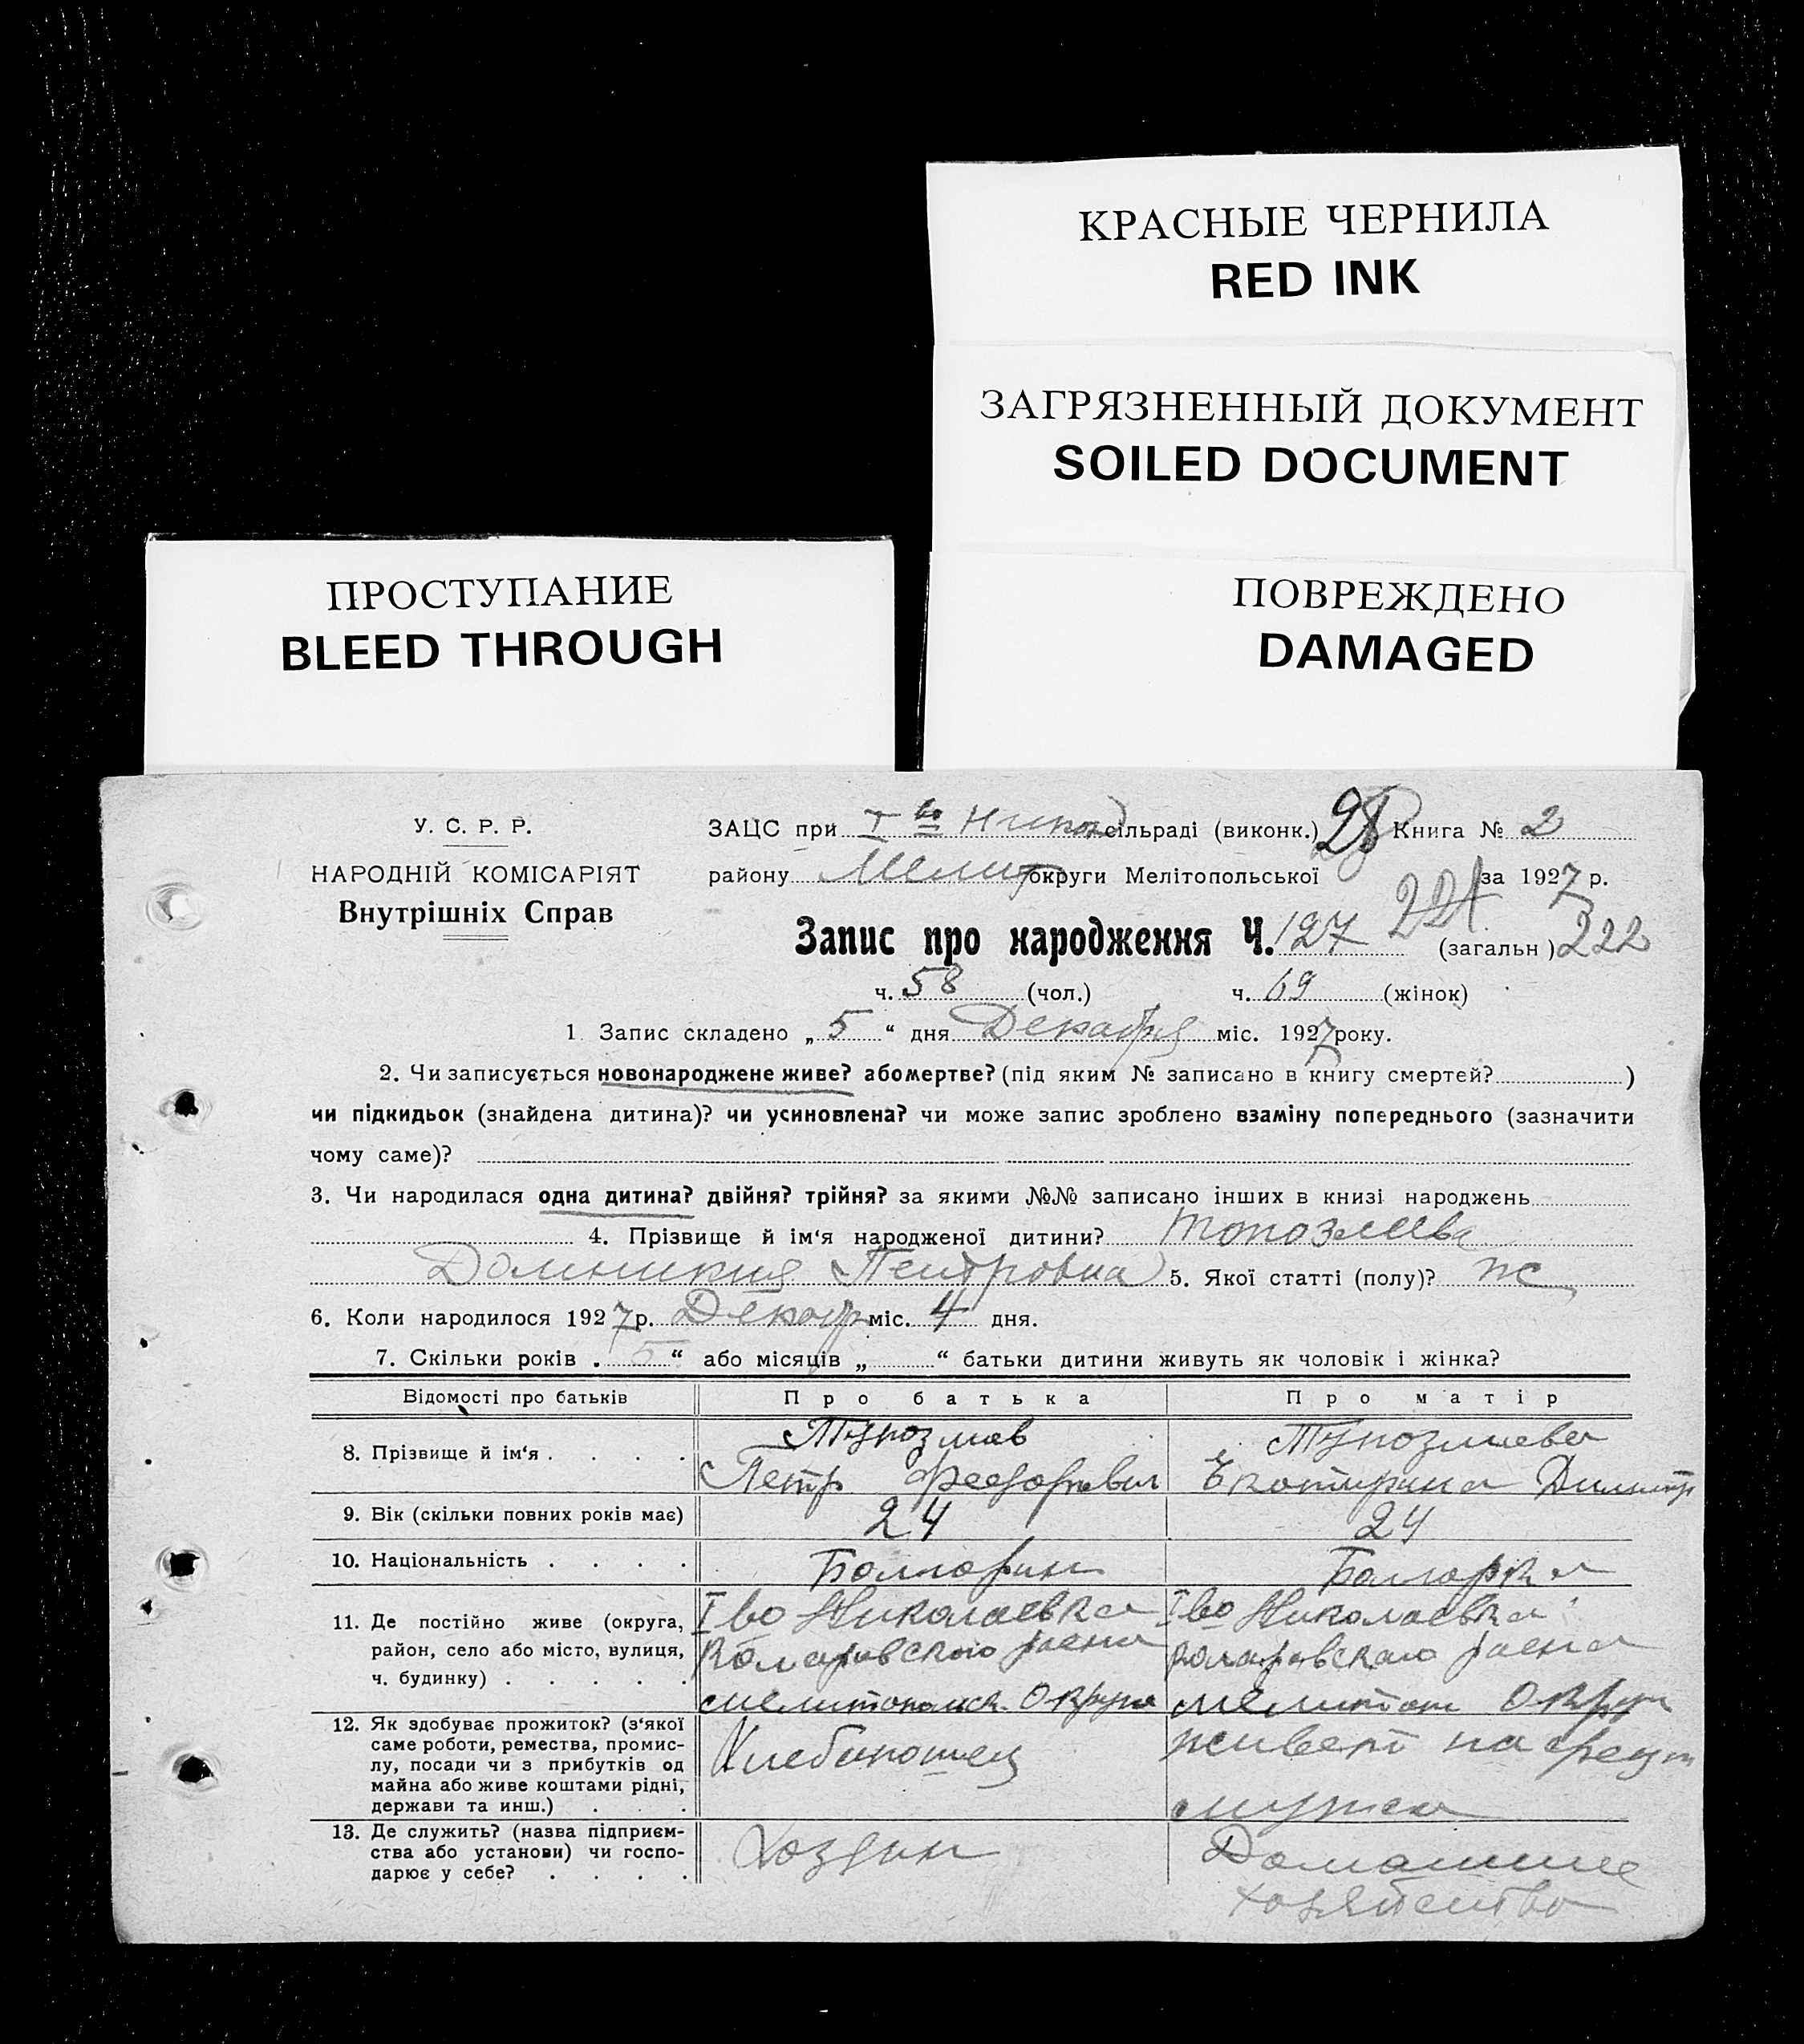 КРАСНЫЕ ЧЕРНИЛА
RED INK
ЗАГРЯЗНЕННЫЙ ДОКУМЕНТ
SOILED DOCUMENT
ПРОСТУПАНИЕ
BLEED THROUGH
ПОВРЕЖДЕНО
DAMAGED
У. С. Р. Р.
НАРОДНІЙ КОМІСАРІЯТ
Внутрішніх Справ
ЗАЦС при I во Никол сільраді (виконк.) Книга № 2
району Мелит округи Мелітопольської за 1927 р.
Запис про народження Ч. 127 221 (загальн) 222
ч. 58 (чол.) ч. 69 (жінок)
1 Запис складено „ 5 “ дня Декабря міс. 1927 року.
2. Чи записується новонароджене живе? абомертве? (під яким № записано в книгу смертей? )
чи підкидьок (знайдена дитина)? чи усиновлена? чи може запис зроблено взаміну попереднього (зазначити
чому саме)?
3. Чи народилася одна дитина? двійня? трійня? за якими №№ записано інших в книзі народжень
4. Прізвище й ім‘я народженої дитини? Топозлиева
Домникия Пентровна 5. Якої статті (полу)? ж
6. Коли народилося 1927 р. Декабр міс. 4 дня.
7. Скільки років . 5 “ або місяців „ “ батьки дитини живуть як чоловік і жінка?
Відомості про батьків Про батька Про матір
8. Прізвище й ім‘я . . . .
Петр Феодорович Екотирина Димитр
9. Вік (скільки повних років має) 24 24
10. Національність . . . . Болгорин Болгорка
11. Де постійно живе (округа, Iво Николаевка Iво Николаевка
район, село або місто, вулиця, Коларовского раена Коларовскаго раена
ч. будинку) . . . . . мелитопольск. Округа мелитоп Округ
12. Як здобуває прожиток? (з‘якої
саме роботи, ремества, промис- Хлебипошец живет на средт
лу, посади чи з прибутків од
майна або живе коштами рідні,
держави та инш.) . . . мужа
13. Де служить? (назва підприєм-
ства або установи) чи госпо- Хозяин Домашние
дарює у себе? . . . . хозяйство